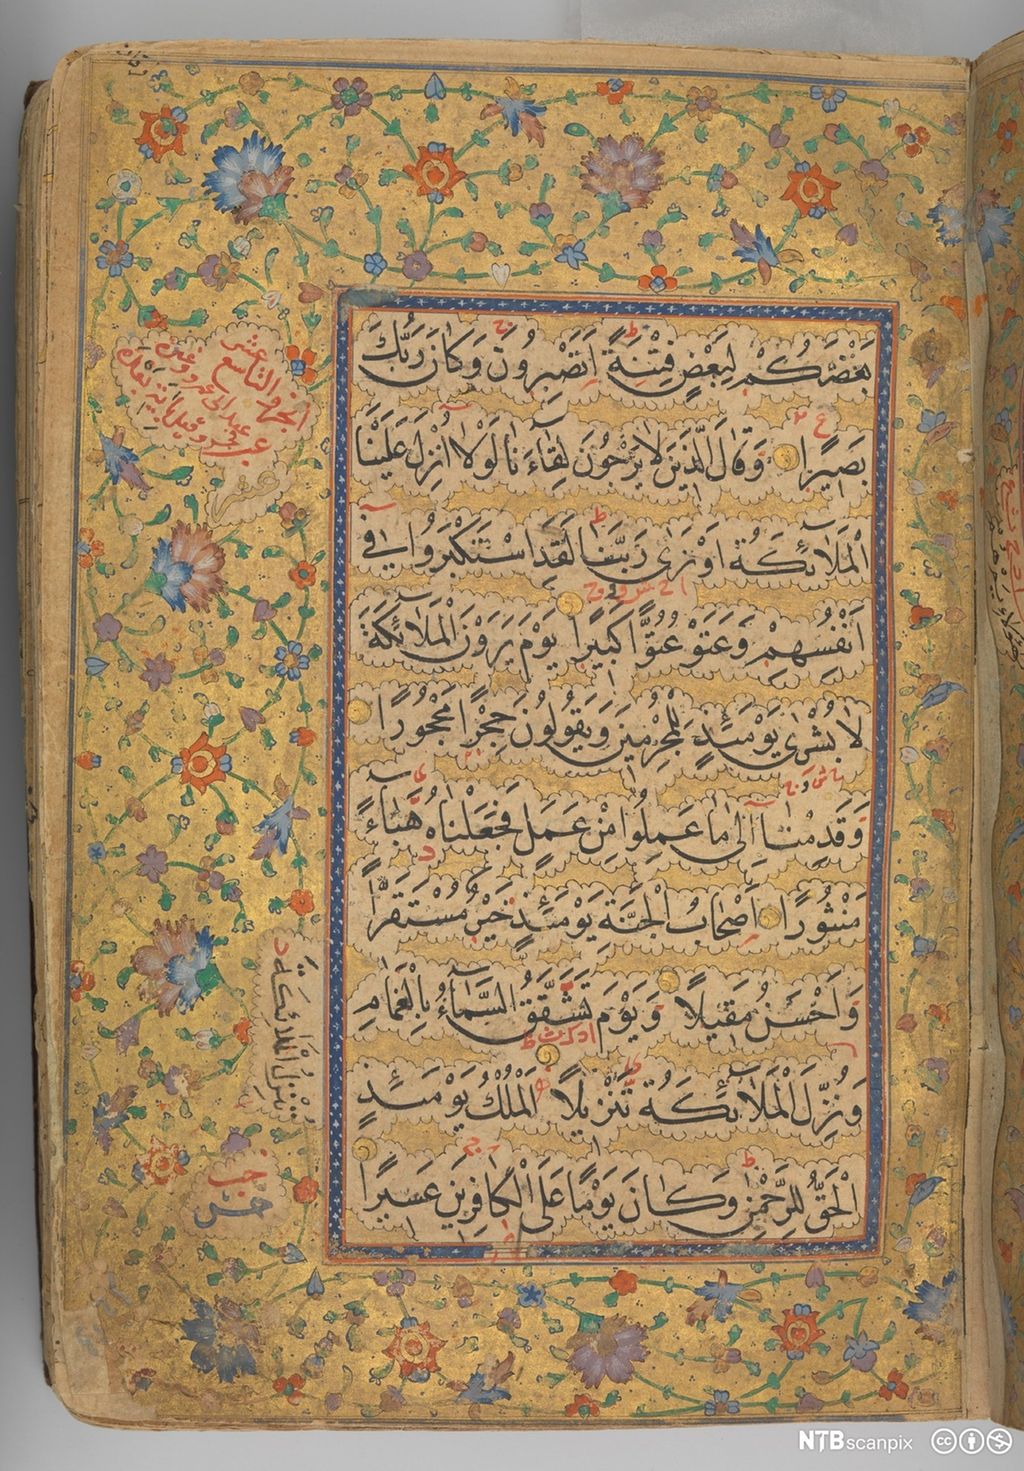 بَعْضَكُمْ لِبَعْضٍ فِتْنَةً اَتَصْبِرُونَ وَكَانَ رَبُّكَ
بَصِيرًا وَقَالَ الَّذِينَ لَا يَرْجُونَ لِقَاءَنَا لَوْلَا اُنْزِلَ عَلَيْنَا
الْمَلَائِكَةُ اَوْ نَرٰى رَبَّنَا لَقَدِ اسْتَكْبَرُوا فِي
اَنْفُسِهِمْ وَعَتَوْ عُتُوًّا كَبِيرًا يَوْمَ يَرَوْنَ الْمَلَائِكَةَ
لَا بُشْرٰى يَوْمَئِذٍ لِلْمُجْرِمِينَ وَيَقُولُونَ حِجْرًا مَحْجُورًا
وَقَدِمْنَا اِلٰى مَا عَمِلُوا مِنْ عَمَلٍ فَجَعَلْنَاهُ هَبَاءً
مَنْثُورًا اَصْحَابُ الْجَنَّةِ يَوْمَئِذٍ خَيْرٌ مُسْتَقَرًّا
وَاَحْسَنُ مَقِيلًا وَيَوْمَ تَشَقَّقُ السَّمَاءُ بِالْغَمَامِ
وَنُزِّلَ الْمَلَائِكَةُ تَنْزِيلًا اَلْمُلْكُ يَوْمَئِذٍ
الْحَقُّ لِلرَّحْمٰنِ وَكَانَ يَوْمًا عَلَى الْكَافِرِينَ عَسِيرًا
الجزو التاسع عشر
NTB scanpix